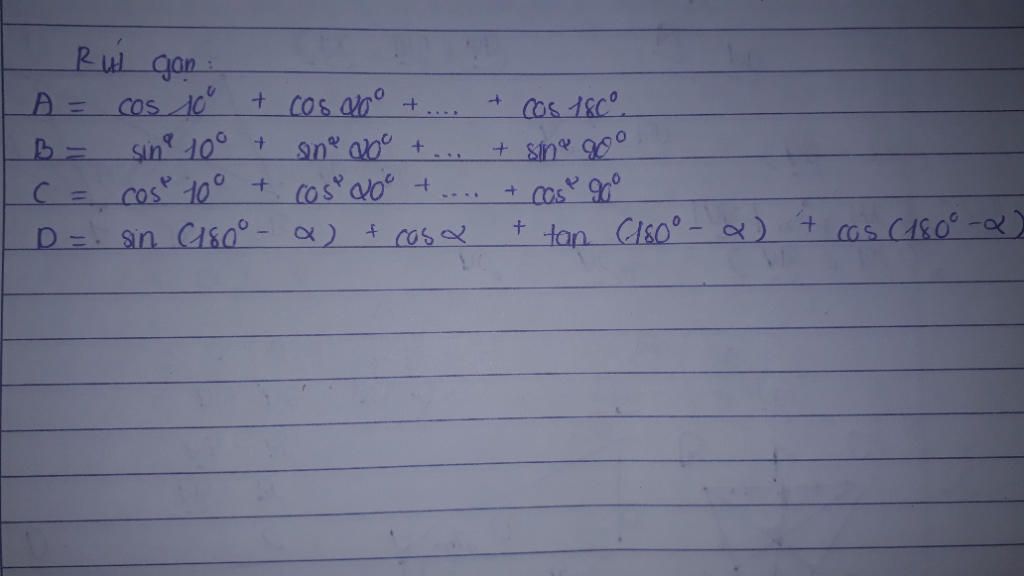 Rút gọn:
A = cos 10⁰ + cos 20⁰ + .... + cos 180⁰.
B = sin² 10⁰ + sin² 20⁰ + ... + sin² 90⁰
C = cos² 10⁰ + cos² 20⁰ + .... + cos² 90⁰
D = sin (180⁰ - α) + cos α + tan (180⁰ - α) + cos (180⁰ - α)